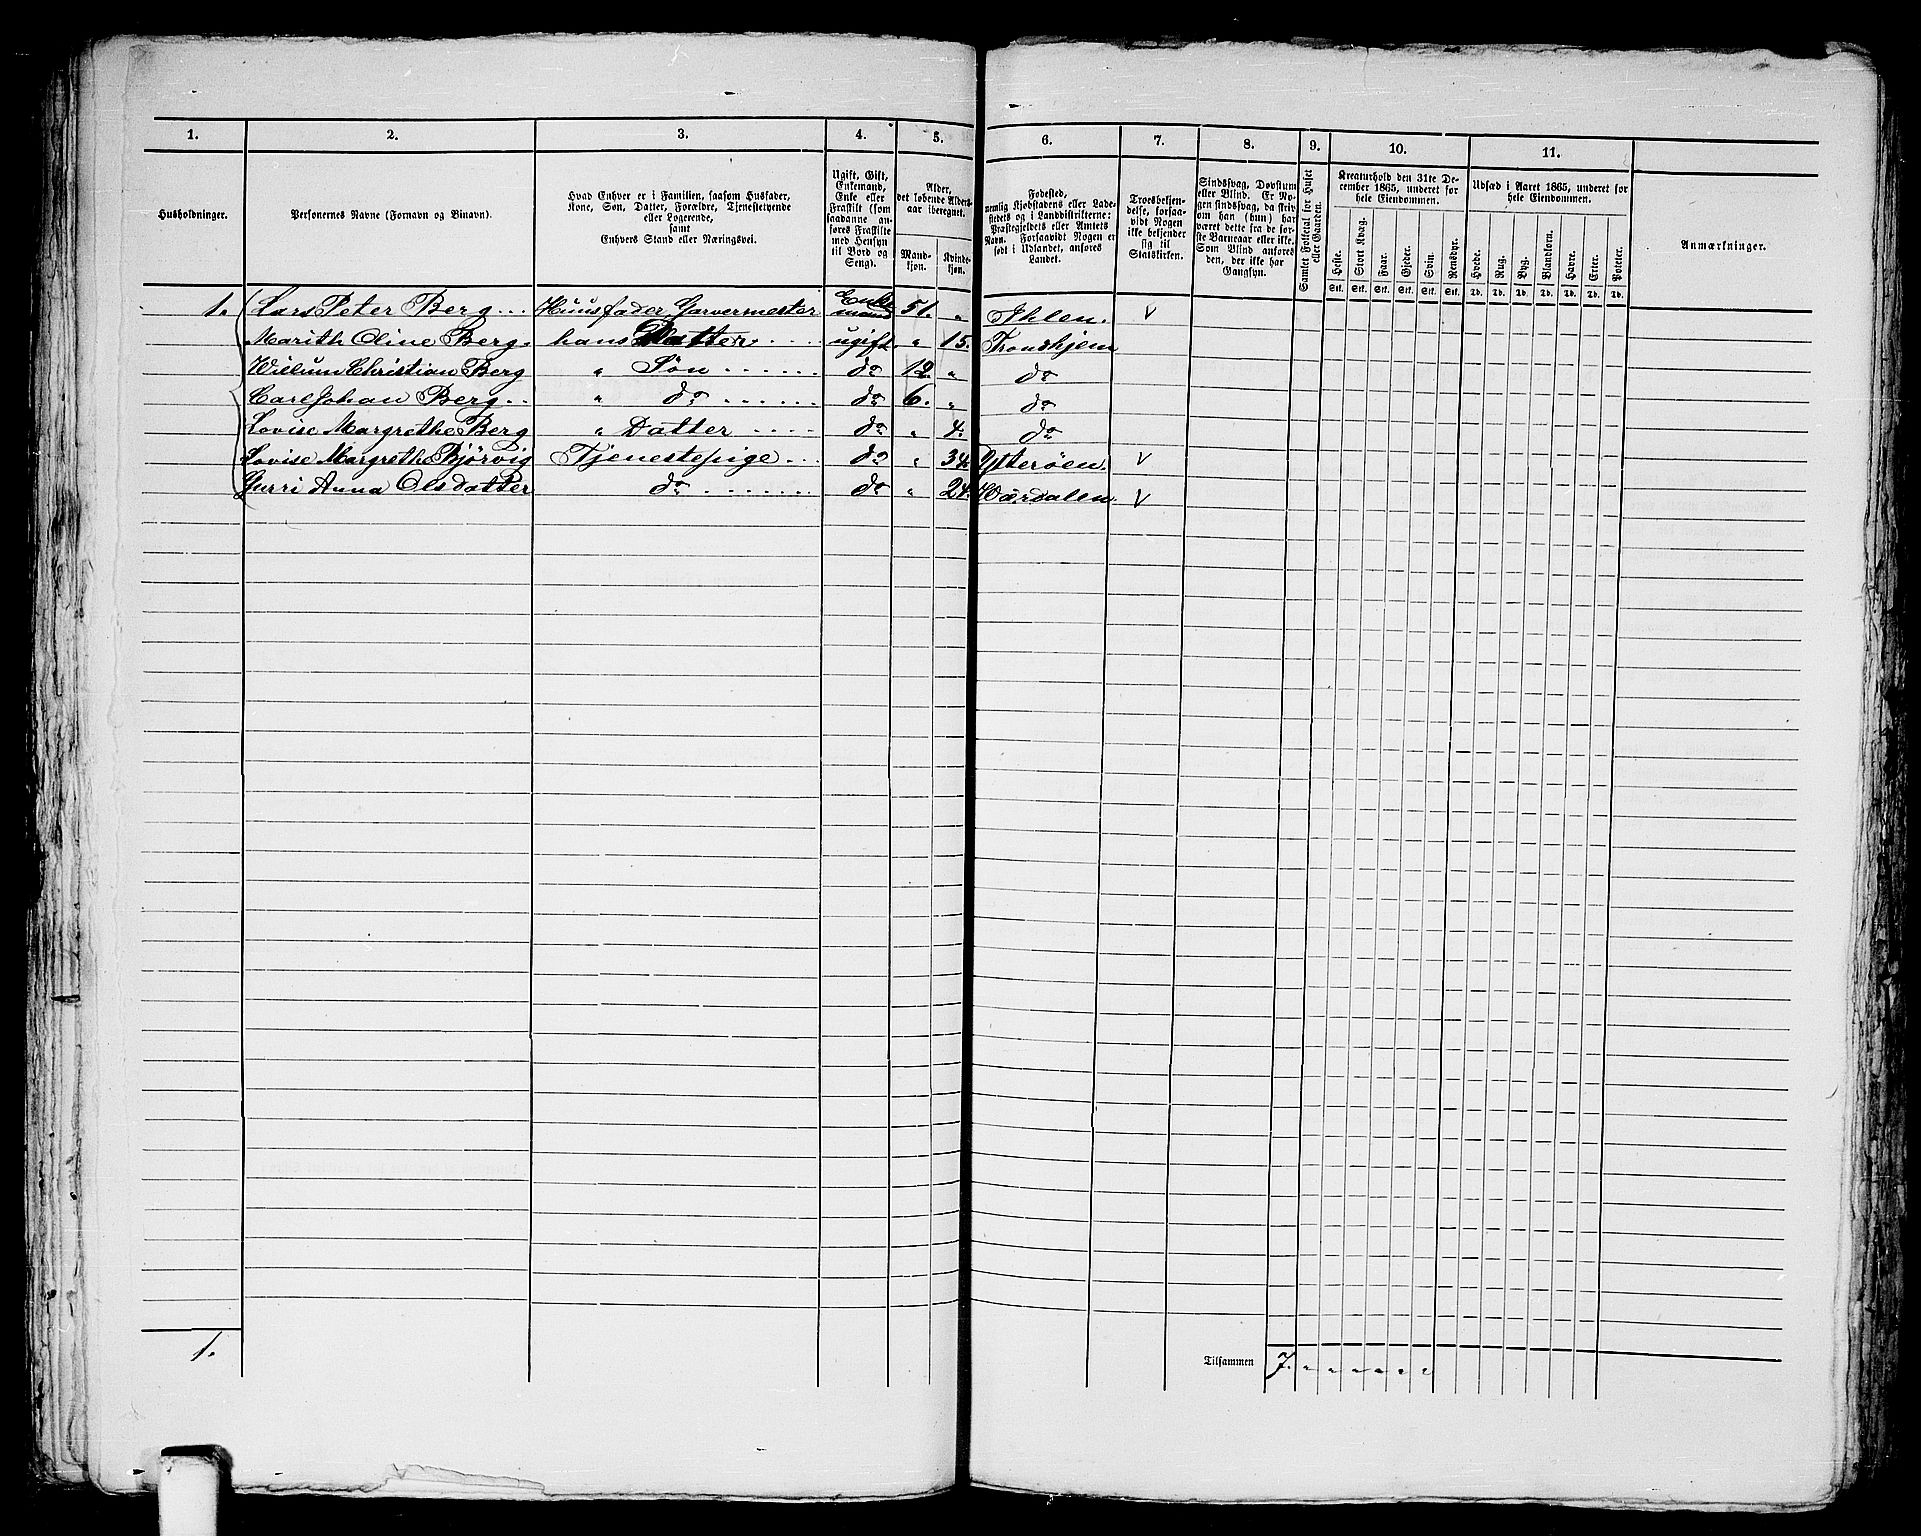 1. 2. 3. 4. 5. 6. 7. 8. 9. 10. 11.
Husholdninger.
Personernes Navne (Fornavn og Binavn).
Hvad Enhver er i Familien, saasom Husfader,
Kone, Søn, Datter, Forældre, Tjenestetyende
eller Logerende,
samt
Enhvers Stand eller Næringsvei.
Ugift, Gift,
Enkemand,
Enke eller
Fraskilt (som
saadanne an-
føres Fraskilte
med Hensyn
til Bord og
Seng).
Alder,
det løbende Alders-
aar iberegnet.
Mand-
kjøn.
Kvinde-
kjøn.
Fødested,
nemlig Kjøbstadens eller Lade-
stedets og i Landdistrikterne:
Præstegjeldets eller Amtets
Navn. Forsaavidt Nogen er
født i Udlandet, anføres
Landet.
Troesbekjen-
delse, forsaa-
vidt Nogen
ikke bekjender
sig til
Statskirken.
Sindssvag, Døvstum
eller Blind. Er No-
gen sindssvag, da skriv
om han (hun) har
været dette fra de før-
ste Barneaar eller ikke.
Som Blind anføres
den, der ikke har
Gangsyn.
Samlet Folketal for Huset
eller Gaarden.
Kreaturhold den 31te De-
cember 1865, underet for
hele Eiendommen.
Heste. Stort Kvæg. Faar. Gjeder. Svin. Rensdyr.
Stk. Stk. Stk. Stk. Stk. Stk.
Udsæd i Aaret 1865, underet for
hele Eiendommen.
Hvede. Rug. Byg. Blandkorn. Havre. Erter. Poteter.
Td. Td. Td. Td. Td. Td. Td.
Anmærkninger.
1. Lars Peter Berg Huusfader, Garvermester Enkemand 51. „ Ihlen. V
Marith Oline Berg. hans Datter. ugift. „ 15. Trondhjem
Willum Christian Berg „ Søn do 12. „ do
Carl Johan Berg „ do do 6. „ do
Lovise Margrethe Berg „ Datter do „ 4. do
Lovise Margrethe Bjørvig Tjenestepige do „ 34. Ytterøen. V
Gurri Anna Olsdatter do do „ 24. Værdalen V
1.
Tilsammen 7. „ „ „ „ „ „